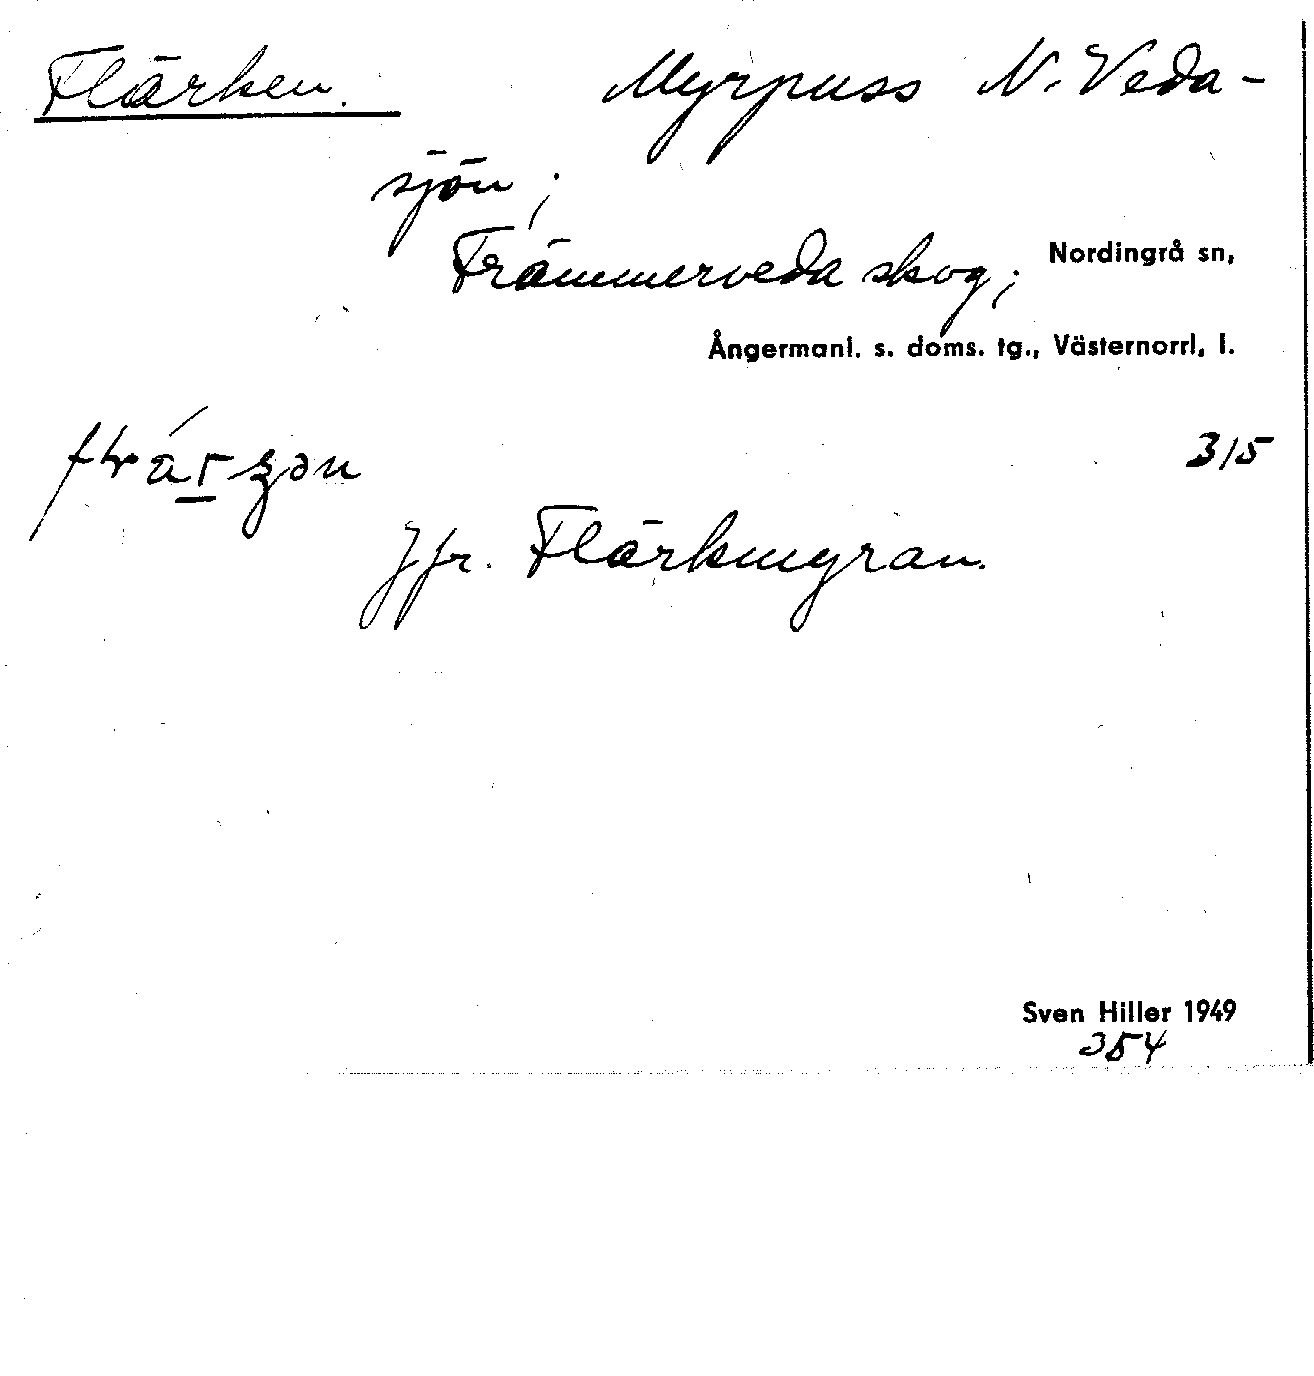 Flärken. Myrpuss N. Veda-
sjön;
Främmerveda skog; Nordingrå sn,
Ångermanl. s. doms. tg., Västernorrl. l.
315
Jfr. Flärkmyran.
Sven Hiller 1949
354